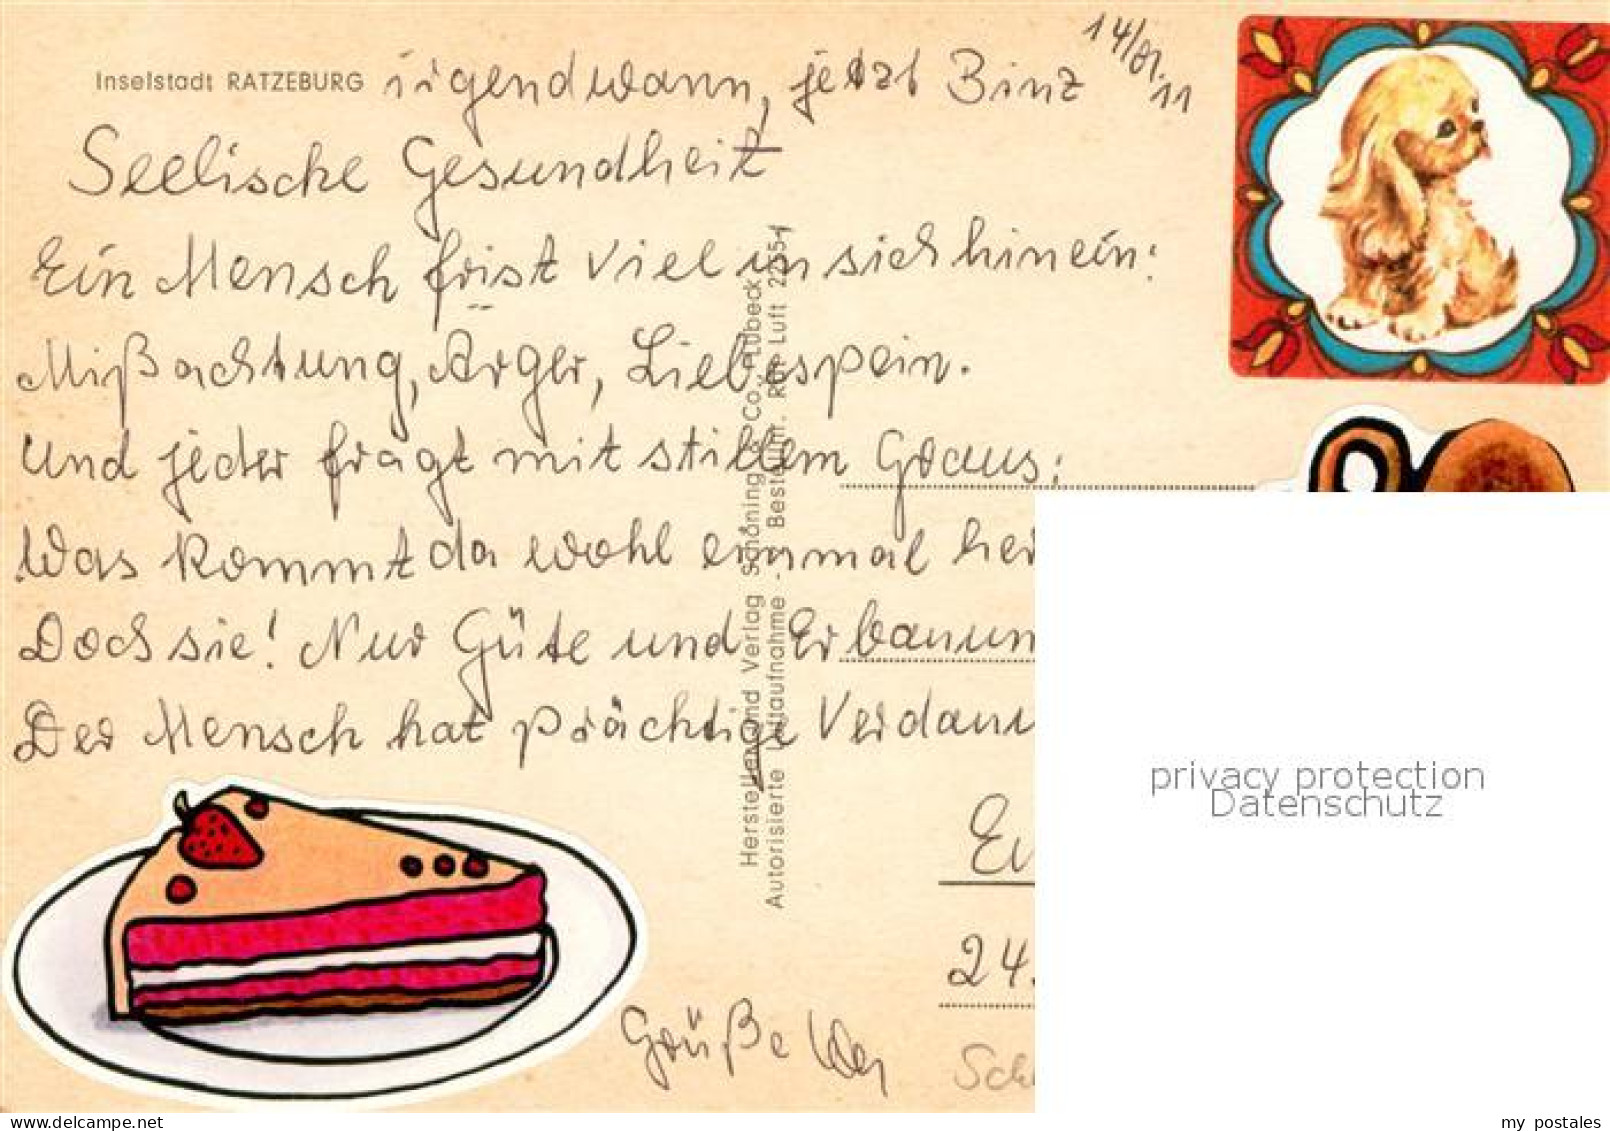 14/01.11
Inselstadt RATZEBURG irgendwann, jetzt Binz
Seelische Gesundheit
Ein Mensch frist viel in sich hinein:
Mißachtung, Ärger, Liebespein.
Und jeder fragt mit stillem Graus:
Was kommt da wohl einmal her
Doch sie! Nur Güte und Erbauun
Der Mensch hat prächtige Verdaun
Herstellen und Verlag Schöning & Co., Lübeck
Autorisierte Luftaufnahme - Bestellnr. Rat Luft 2
24.
Grüße
privacy protection
Datenschutz
www.delcampe.net
my postales